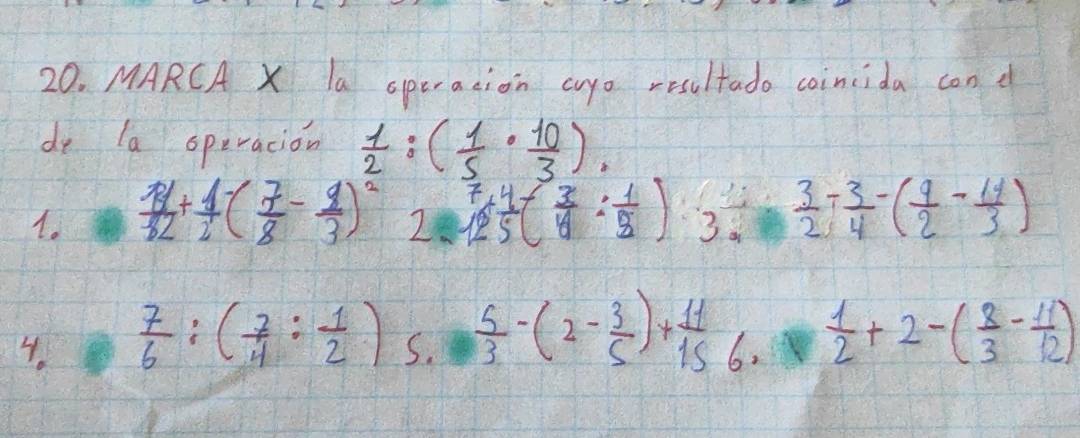 20. MARCA X la operación cuyo resultado coincida con el
de la operación 1/2 : (1/5 · 10/3).
1. + 1/2 - (7/8 - /3)² 2. 4/5 - ( : 1/ ) 3. 3/2 - 3/4 - (9/2 - 11/3)
4. 7/6 : (7/4 : 1/2) 5. 5/3 - (2 - 3/5) + 11/15 6. 1/2 + 2 - (8/3 - 11/12)